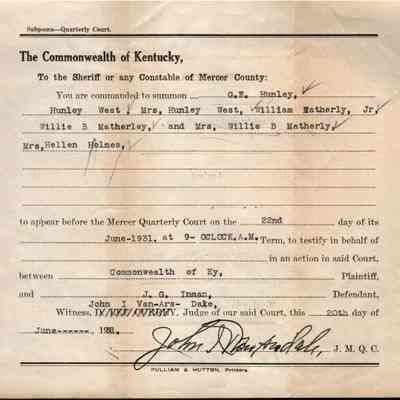 Subpœna—Quarterly Court.
The Commonwealth of Kentucky,
To the Sheriff or any Constable of Mercer County:
You are commanded to summon G.E. Hunley,
Hunley West, Mrs, Hunley West, William Matherly, Jr,
Willie B Matherley, and Mrs, Willie B Matherly,
Mrs, Hellen Holmes,
to appear before the Mercer Quarterly Court on the 22nd day of its
June-1931, at 9- OCLOCK.A.M. Term, to testify in behalf of
in an action in said Court,
between Commonwealth of Ky, Plaintiff,
and J. G. Inman, Defendant,
John I Van-Ars- Dale,
Witness, Judge of our said Court, this 20th day of
June------, 1931.
John I Van Arsdale, J. M. Q. C.
PULLIAM & HUTTON, Printers.